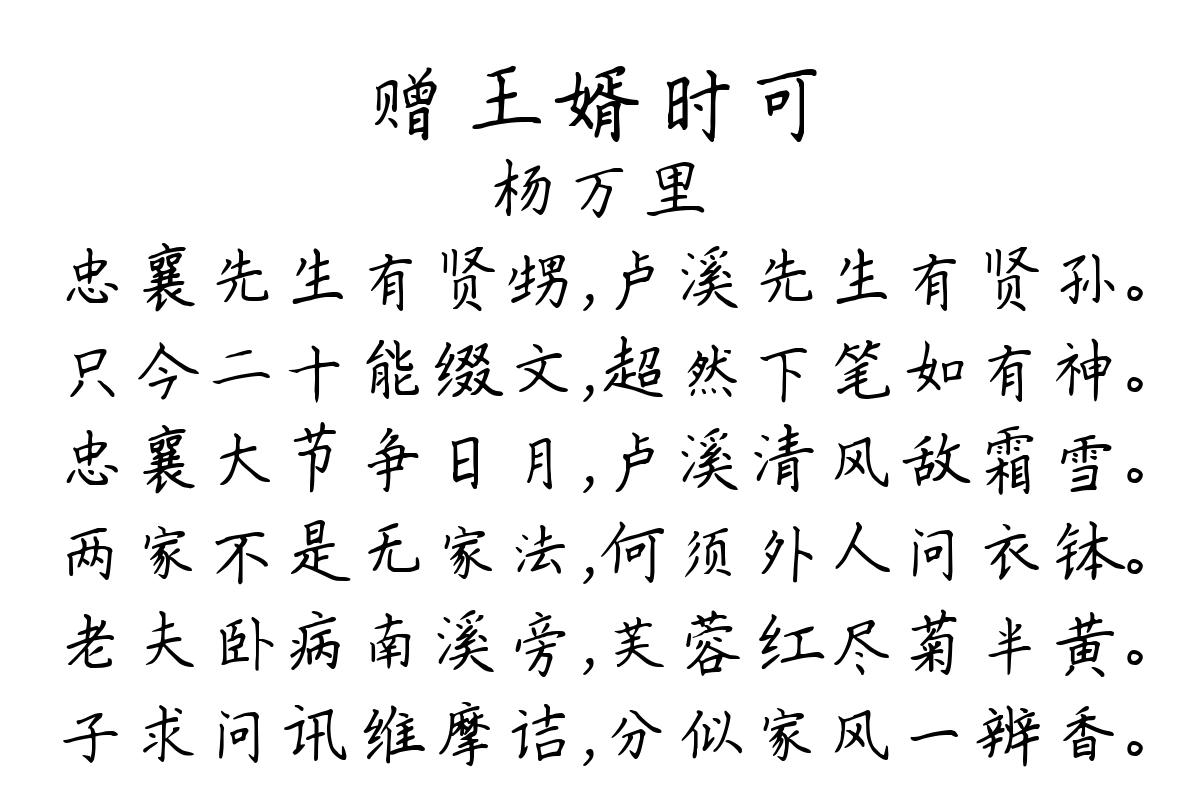 赠王婿时可
杨万里
忠襄先生有贤甥,卢溪先生有贤孙。
只今二十能缀文,超然下笔如有神。
忠襄大节争日月,卢溪清风敌霜雪。
两家不是无家法,何须外人问衣钵。
老夫卧病南溪旁,芙蓉红尽菊半黄。
子求问讯维摩诘,分似家风一辨香。